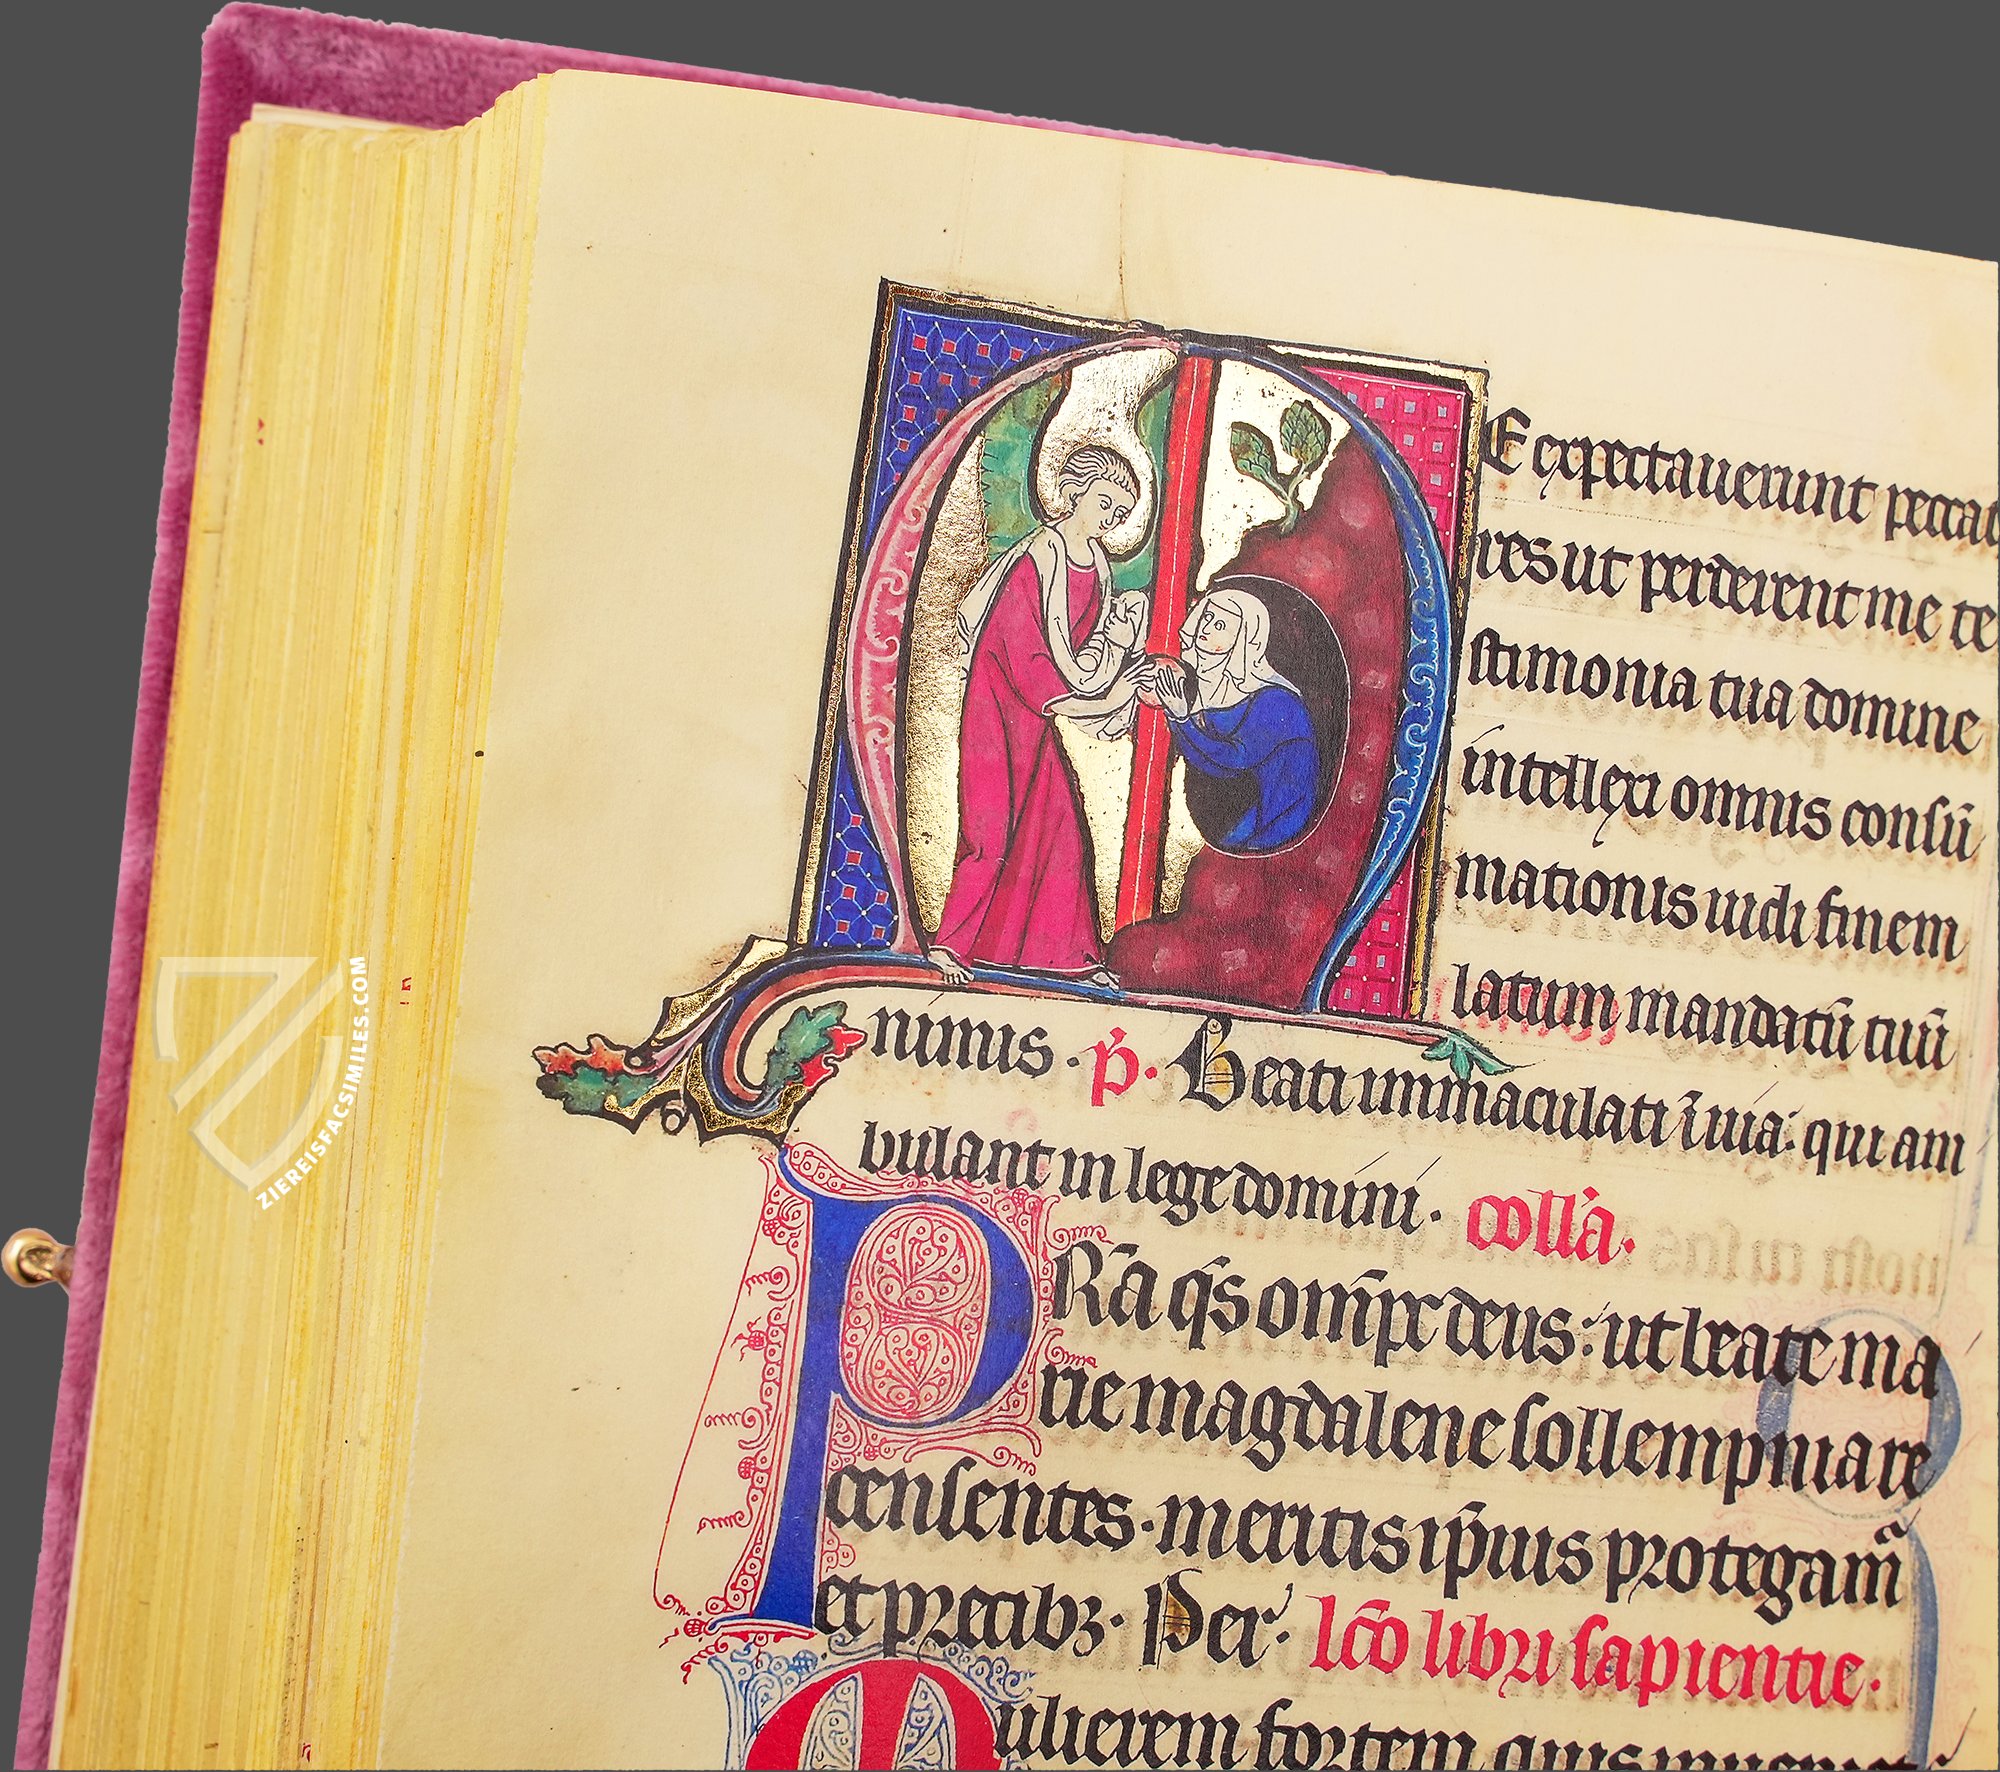 E expectauerunt peccat
res ut perderent me te
stimonia tua domine
intellexi omnis consū
mationis uidi finem
latum mandatū tuū
nimis . p̄. Beati immaculati ī uia: qui am
bulant in lege domini. coll̄a.
PR̄a q̄s om̄pc deus: ut beate ma
rie magdalene sollempnia re
censentes. meritis ip̄ius protegam̄
et precibꝫ. Per. lc̄o libri sapientie.
Mulierem fortem quis inueniet
ZIEREISFACSIMILES.COM